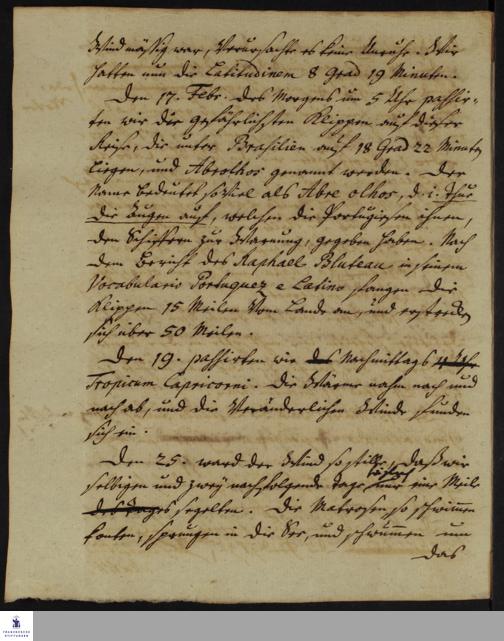 Wind mässig war, verursachte es keine Unruhe. Wir
hatten nun die Latitudinem 8 Grad 19 Minuten.
Den 17. Febr. des Morgens um 5 Uhr passir-
ten wir die gefährlichsten Klippen auf dieser
Reise, die unter Brasilien auf 18 Grad 22 Minuten
liegen, und Abrolhos genannt werden. Der
Name bedeutet so viel als Abre olhos, d. i. Thue
die Augen auf, welchen die Portugiesen ihnen,
den Schiffern zur Warnung, gegeben haben. Nach
dem Bericht des Raphael Bluteau in seinem
Vocabulario Portuguez e Latino fangen die
Klippen 15 Meilen vom Lande an, und erstrecken
sich über 50 Meilen.
Den 19. passirten wir des Nachmittags 4 Uhr
Tropicum Capricorni. Die Wärme nahm nach und
nach ab, und die veränderlichen Winde funden
sich ein.
Den 25. ward der Wind so stille, daß wir
selbigen und zwey nachfolgende Tage nur eine Meile
des Tages segelten. Die Matrosen so schwimmen
konten, sprungen in die See, und schwummen um
das
FRANCKESCHE
STIFTUNGEN